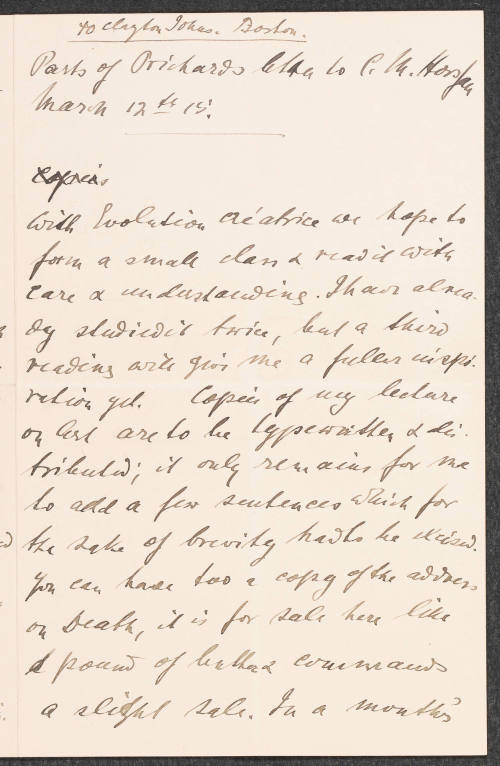 to Clayton Johns. Boston.
Parts of Prichards letter to C. M.
March 12th 15.
Copies
With Evolution créatrice we hope to
form a small class & read it with
care & understanding. I have alrea-
dy studied it twice, but a third
reading will give me a fuller inspi-
ration yet. Copies of my lecture
on are to be typewritten & dis-
tributed; it only remains for me
to add a few sentences which for
the sake of brevity had to be excised.
You can have too a copy of the address
on Death, it is for sale here like
a pound of butter & commands
a slight sale. In a month's